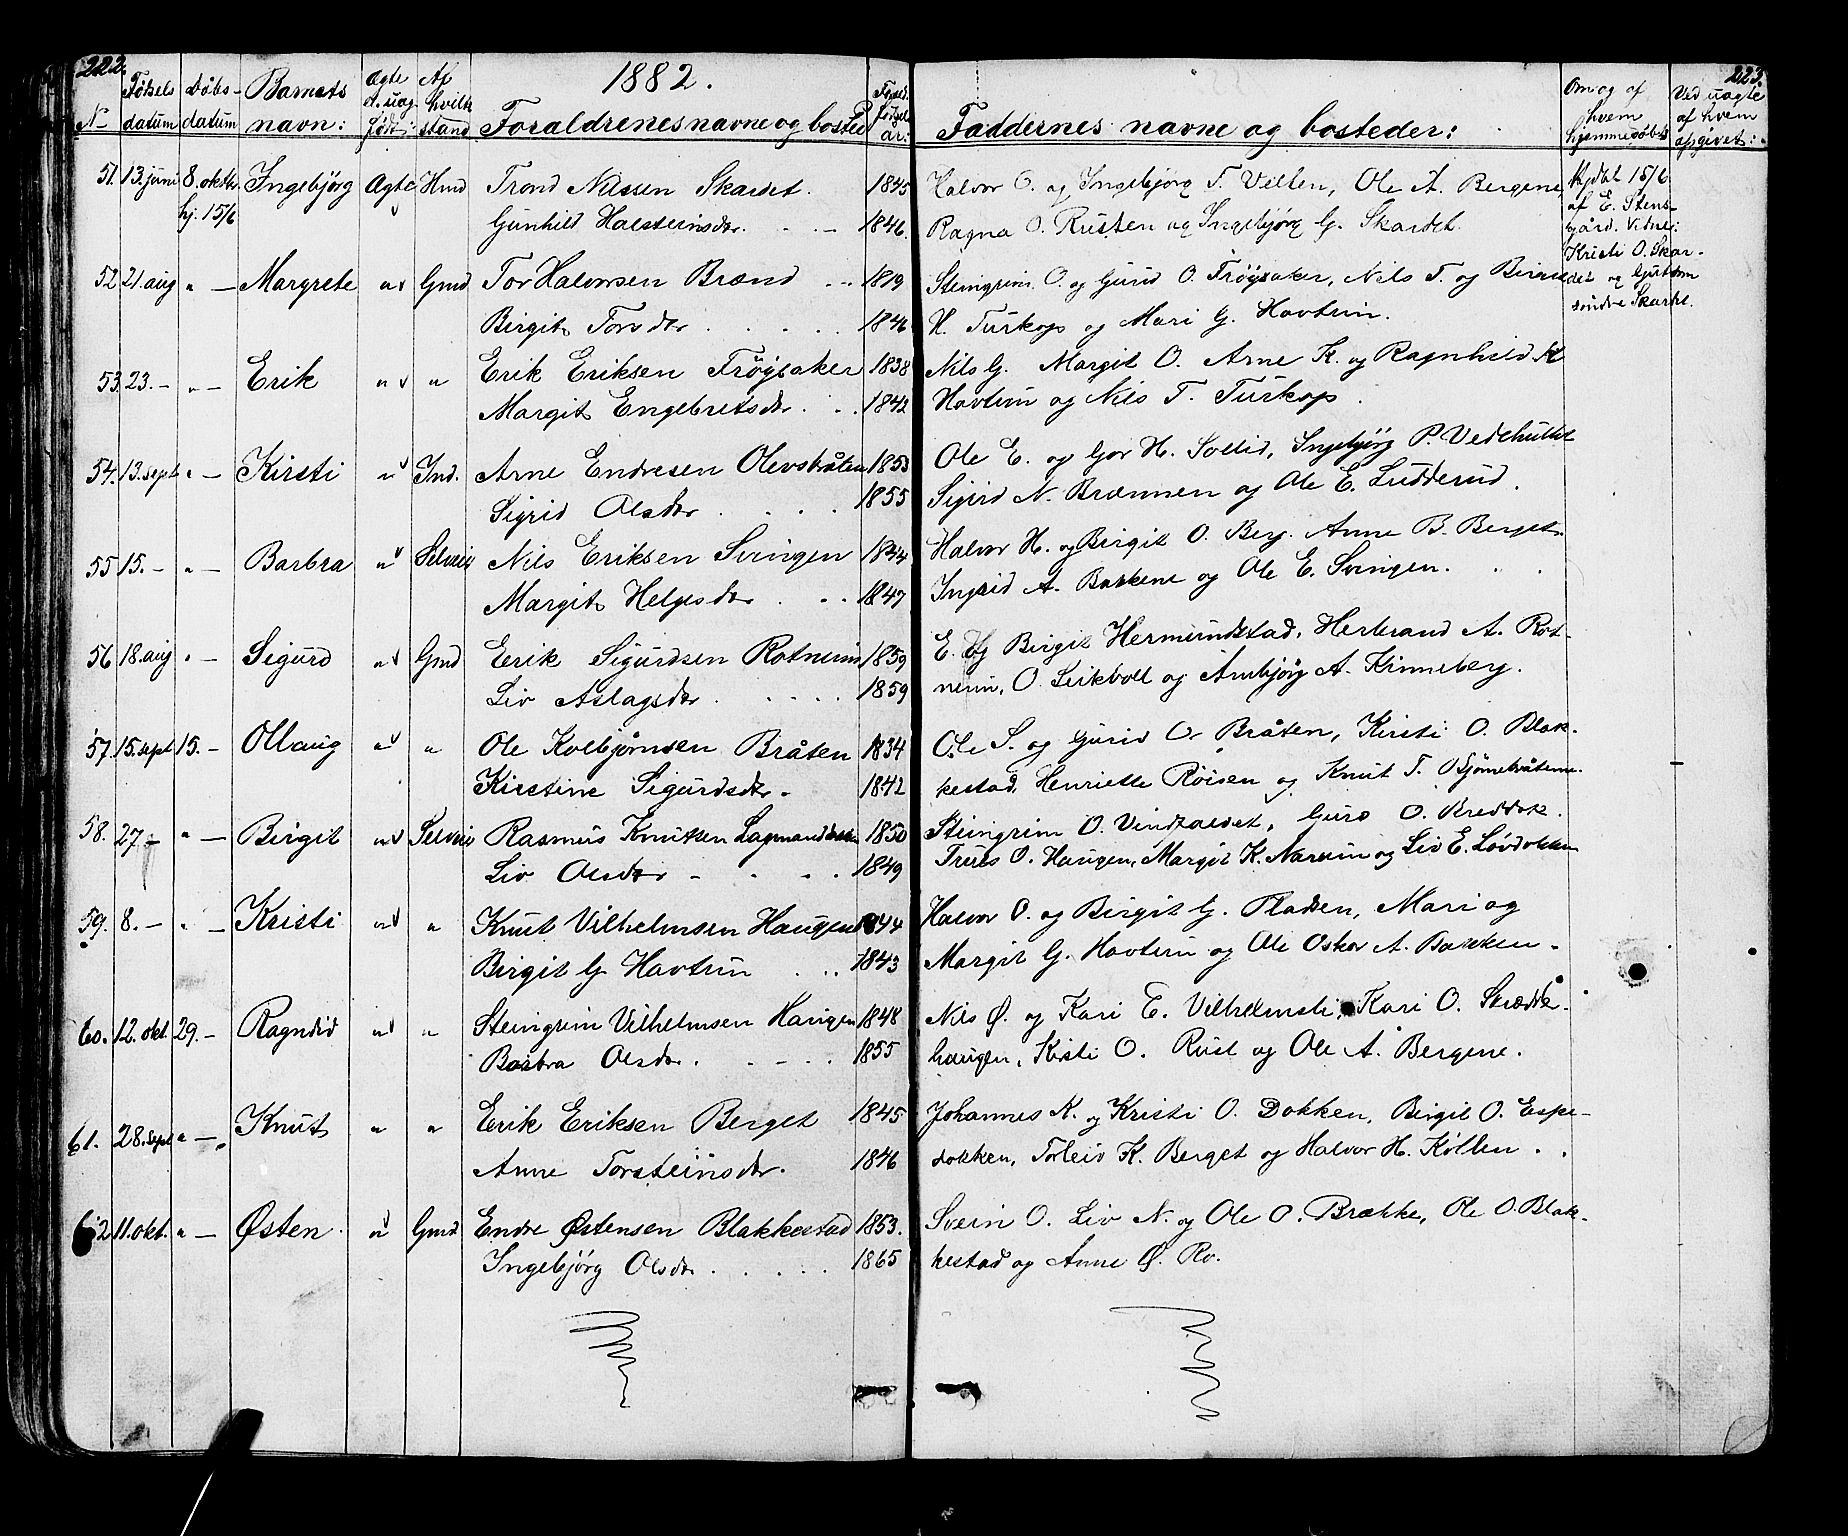 222.
1882.
223.
No
Fødsels datum
Døbs- datum
Barnets navn:
Ægte el. uæg. født:
Af hvilk stand
Foraldrenes navne og bosted
Foræld. Fødsels år:
Faddernes navne og bosteder:
Om og af hvem hjemmedøbt:
Ved uagte af hvem opgivet:
51. 13. juni 8. oktbr. Ingebjörg Ægte Hmd Trond Nilssen Skardet. 1845 Halvor O. og Ingebjörg T. Villen, Ole A. Bergene,
hj. 15/6 Gunhild Halsteinsdr. 1846. Ragna O. Rusten og Ingebjörg G. Skardet.
Hjdbt 15/6
af E. Stens-
gård. Vidne:
Kristi O. Skar-
det og
søndre Skardet.
52 21. aug " — Margrete " Gmd Tor Halvorsen Brænd 1819 Steingrim O. og Gurid O. Trøgaaker, Nils T. og Birgit
Birgit Torsdr 1846 H. Turkop og Mari G. Havtun.
53. 23. – " – Erik " " Erik Eriksen Frögsaker 1838 Nils G. Margit O. Arne K. og Ragnhild K
Margit Engebretsdr. 1842 Havtun og Nils T. Turkop.
54. 13. sept " — Kirsti " Ind. Arne Endresen Olevsbråten 1853 Ole E. og Gor H. Sollid, Ingebjörg P. Vedehullet
Sigrid Olsdr 1855 Sigrid N. Brænnen og Ole E. Ludderud.
55 15. – " — Barbra " Selveier Nils Eriksen Svingen 1844 Halvor H. og Birgit O. Berg. Anne B. Berget.
Margit Helgesdr 1847 Ingrid A. Bakkene og Ole E. Svingen.
56 18. aug " — Sigurd " Gmd Eerik Sigurdsen Rotneim 1859 E. og Birgit Hermundstad, Herbrand A. Rot-
Liv Aslagsdr 1859 neim, O. Leikvoll og Arnbjörg A. Kinneberg.
57. 15. sept 15. – Ollaug " " Ole Kolbjørnsen Bråten 1834 Ole S. og Gurid O. Bråten, Kirsti O. Blak-
Kirstine Sigurdsdr. 1842 kestad, Henriette Røisen og Knut T.
58. 27. – " — Birgit " Selveier Rasmus Knutsen 1850 Steingrim O. Vindfaldet, Guro O. Breddok.
Liv Olsdr 1849 Truls O. Haugen, Margit K. Narum og Liv E. Løvdokken
59. 8. – " — Kristi " " Knut Vilhelmsen Haugen 1844 Halvor O. og Birgit G. Pladsen, Mari og
Birgit G Havtun 1843 Margit G. Havtun og Ole Oskar A. Bakken.
60. 12. okt 29. – Ragndid " " Steingrim Vilhelmsen Haugen 1848 Nils Ø. og Kari E. Vilhelmsli, Kari O. Skrædde-
Barbra Olsdr. 1855 haugen, Kirsti O. Rust og Ole A. Bergene.
61. 28. sept " — Knut " " Erik Eriksen Berget 1845 Johannes K. og Kristi O. Dokken, Birgit O. Espe-
Anne Torsteinsdr. 1846 dokken, Torleiv K. Berget og Halvor H. Kollen.
62 11. okt. " — Østen " Gmd Endre Østensen Blakkestad 1853. Svein O. Liv N. og Ole O. Brække, Ole O. Blak-
Ingebjörg Olsdr 1865 kestad og Anne Ø. Ro.